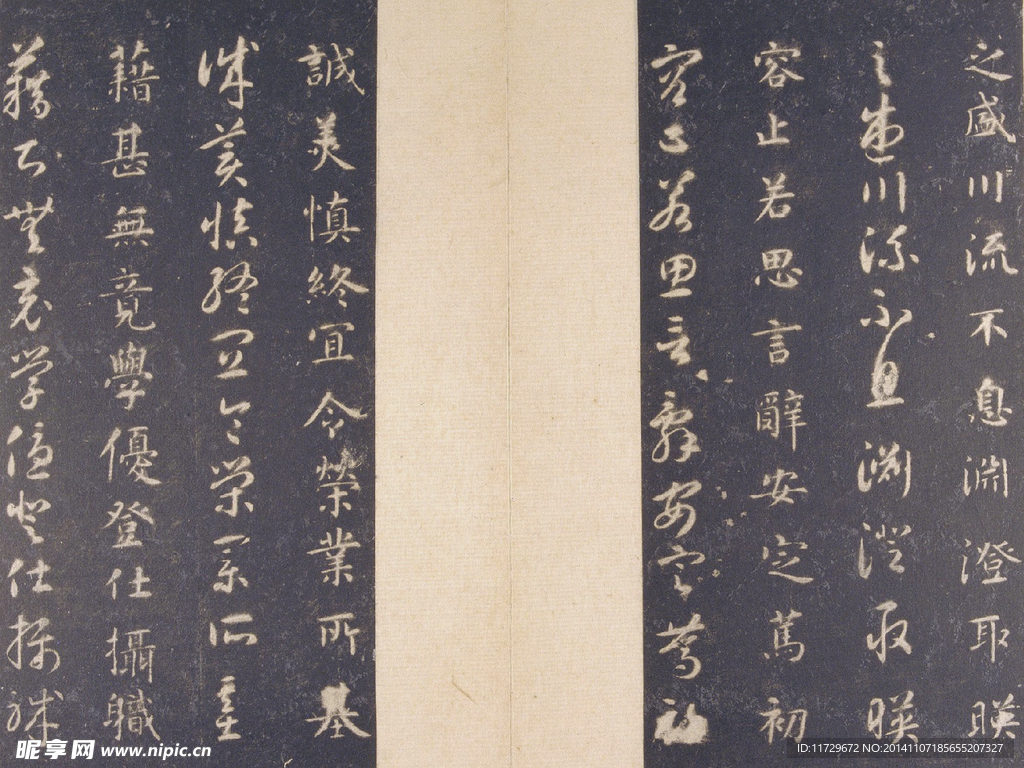 之盛川流不息淵澄取暎
之盛川流不息淵澄取暎
容止若思言辭安定篤初
容止若思言辭安定篤初
誠美慎終宜令榮業所基
誠美慎終宜令榮業所基
藉甚無竟學優登仕攝職
藉甚無竟學優登仕攝職
昵享网 www.nipic.cn
ID:11729672 NO:20141107185655207327